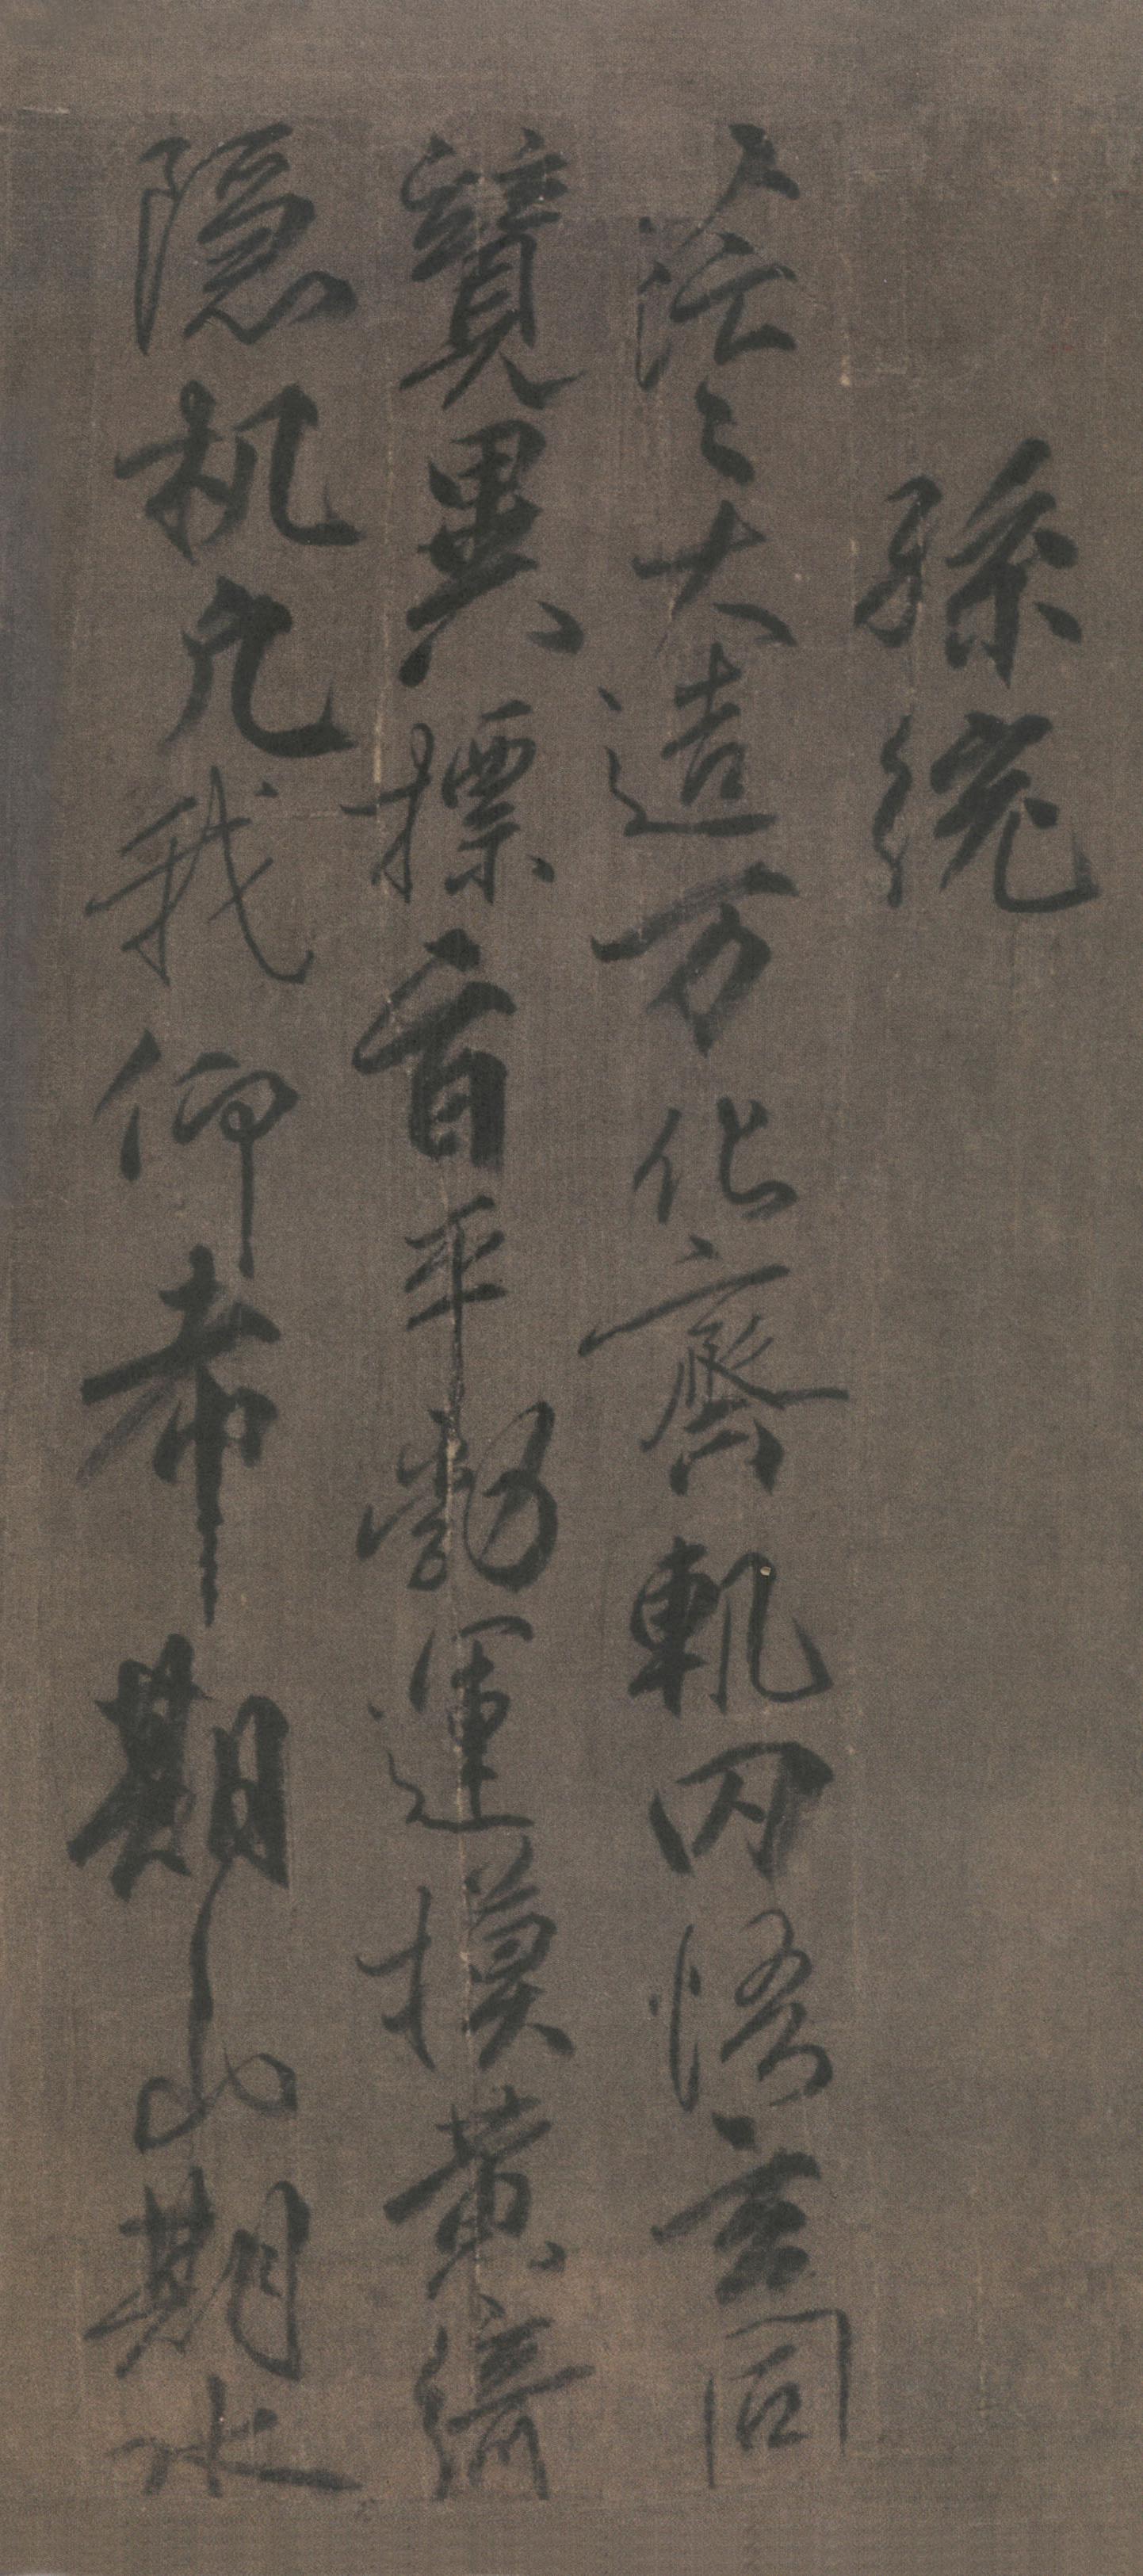 孫統
茫〻大造万化齊軌罔悟玄同
競異摽旨平勃運模黃綺
隱机凡我仰希期山期水